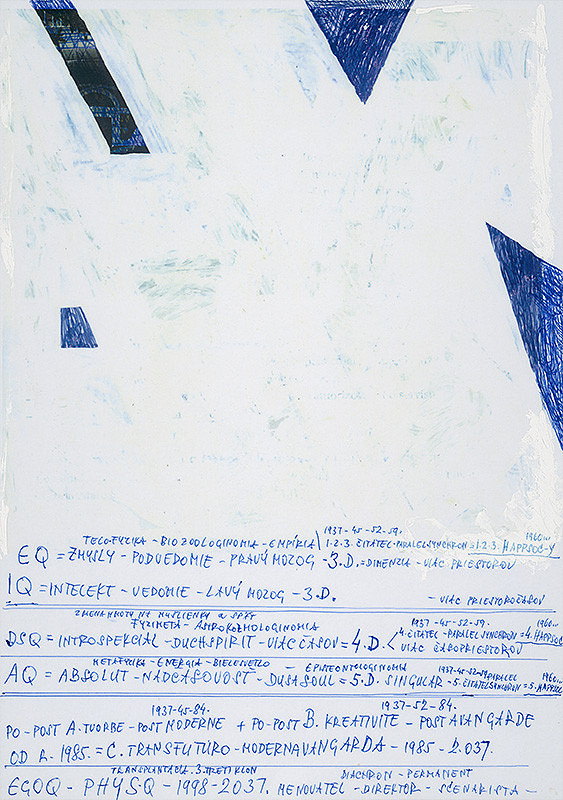 1937-45-52-59.
TELO-FYZIKA - BIOZOOLOGINOMIA - EMPÍRIA
1.2.3. ČITATEL-PARALELSYNCHRON = 1.2.3. HAPPSOC-Y
EQ = ZMYSLY - PODVEDOMIE - PRAVÝ MOZOG - 3.D. = DIMENZIA - VIAC PRIESTOROV
IQ = INTELEKT - VEDOMIE - ĽAVÝ MOZOG - 3.D. - VIAC PRIESTOROČASOV
ZMENA HMOTY NA MYŠLIENKY a SPÄŤ
FYZIMETA - ASTROKOZMOLOGINOMIA
1937-45-52-59. 1960...
4. ČITATEL - PARALEL SYNCHRON = 4. HAPPSOC
DSQ = INTROSPEKCIAL - DUCHSPIRIT - VIAC ČASOV = 4.D. VIAC ČASOPRIESTOROV
METAFYZIKA - ENERGIA - BIELESVETLO - EPITEONTOLOGINOMIA 1937-45-52-59. PARALEL 1960...
AQ = ABSOLUT - NADČASOVOSŤ - DUŠASOUL = 5.D. SINGULAR - 5. ČITATEL SYNCHRON = 5. HAPPSOC
1937-45-84. 1937-52-84.
PO-POST A. TVORBE - POST MODERNE + PO-POST B. KREATIVITE - POST AVANGARDE
OD R. 1985. = C. TRANSFUTURO - MODERNAVANGARDA - 1985 - 2.037.
TRANSPLANTÁCIA. 3. TRETÍ KLON DIACHRON - PERMANENT
EGOQ - PHYSQ - 1998 - 2037. MENOVATEL - DIREKTOR - SCENÁRISTA -